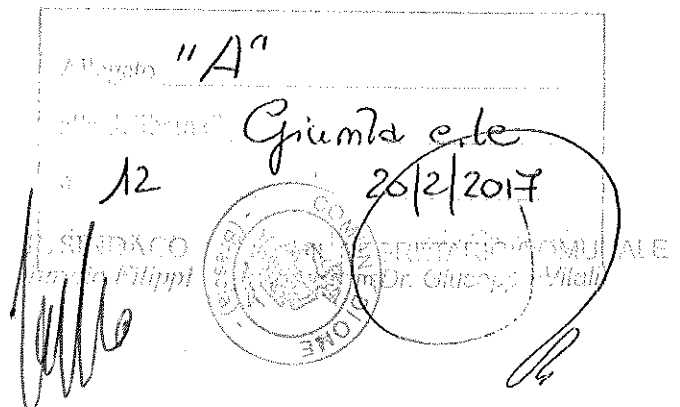 Allegato "A"
alla delibera Giunta C.le
12 20/2/2017
IL SINDACO IL SEGRETARIO COMUNALE
Filippi Dr. Giuseppe Vitali
COMUNE